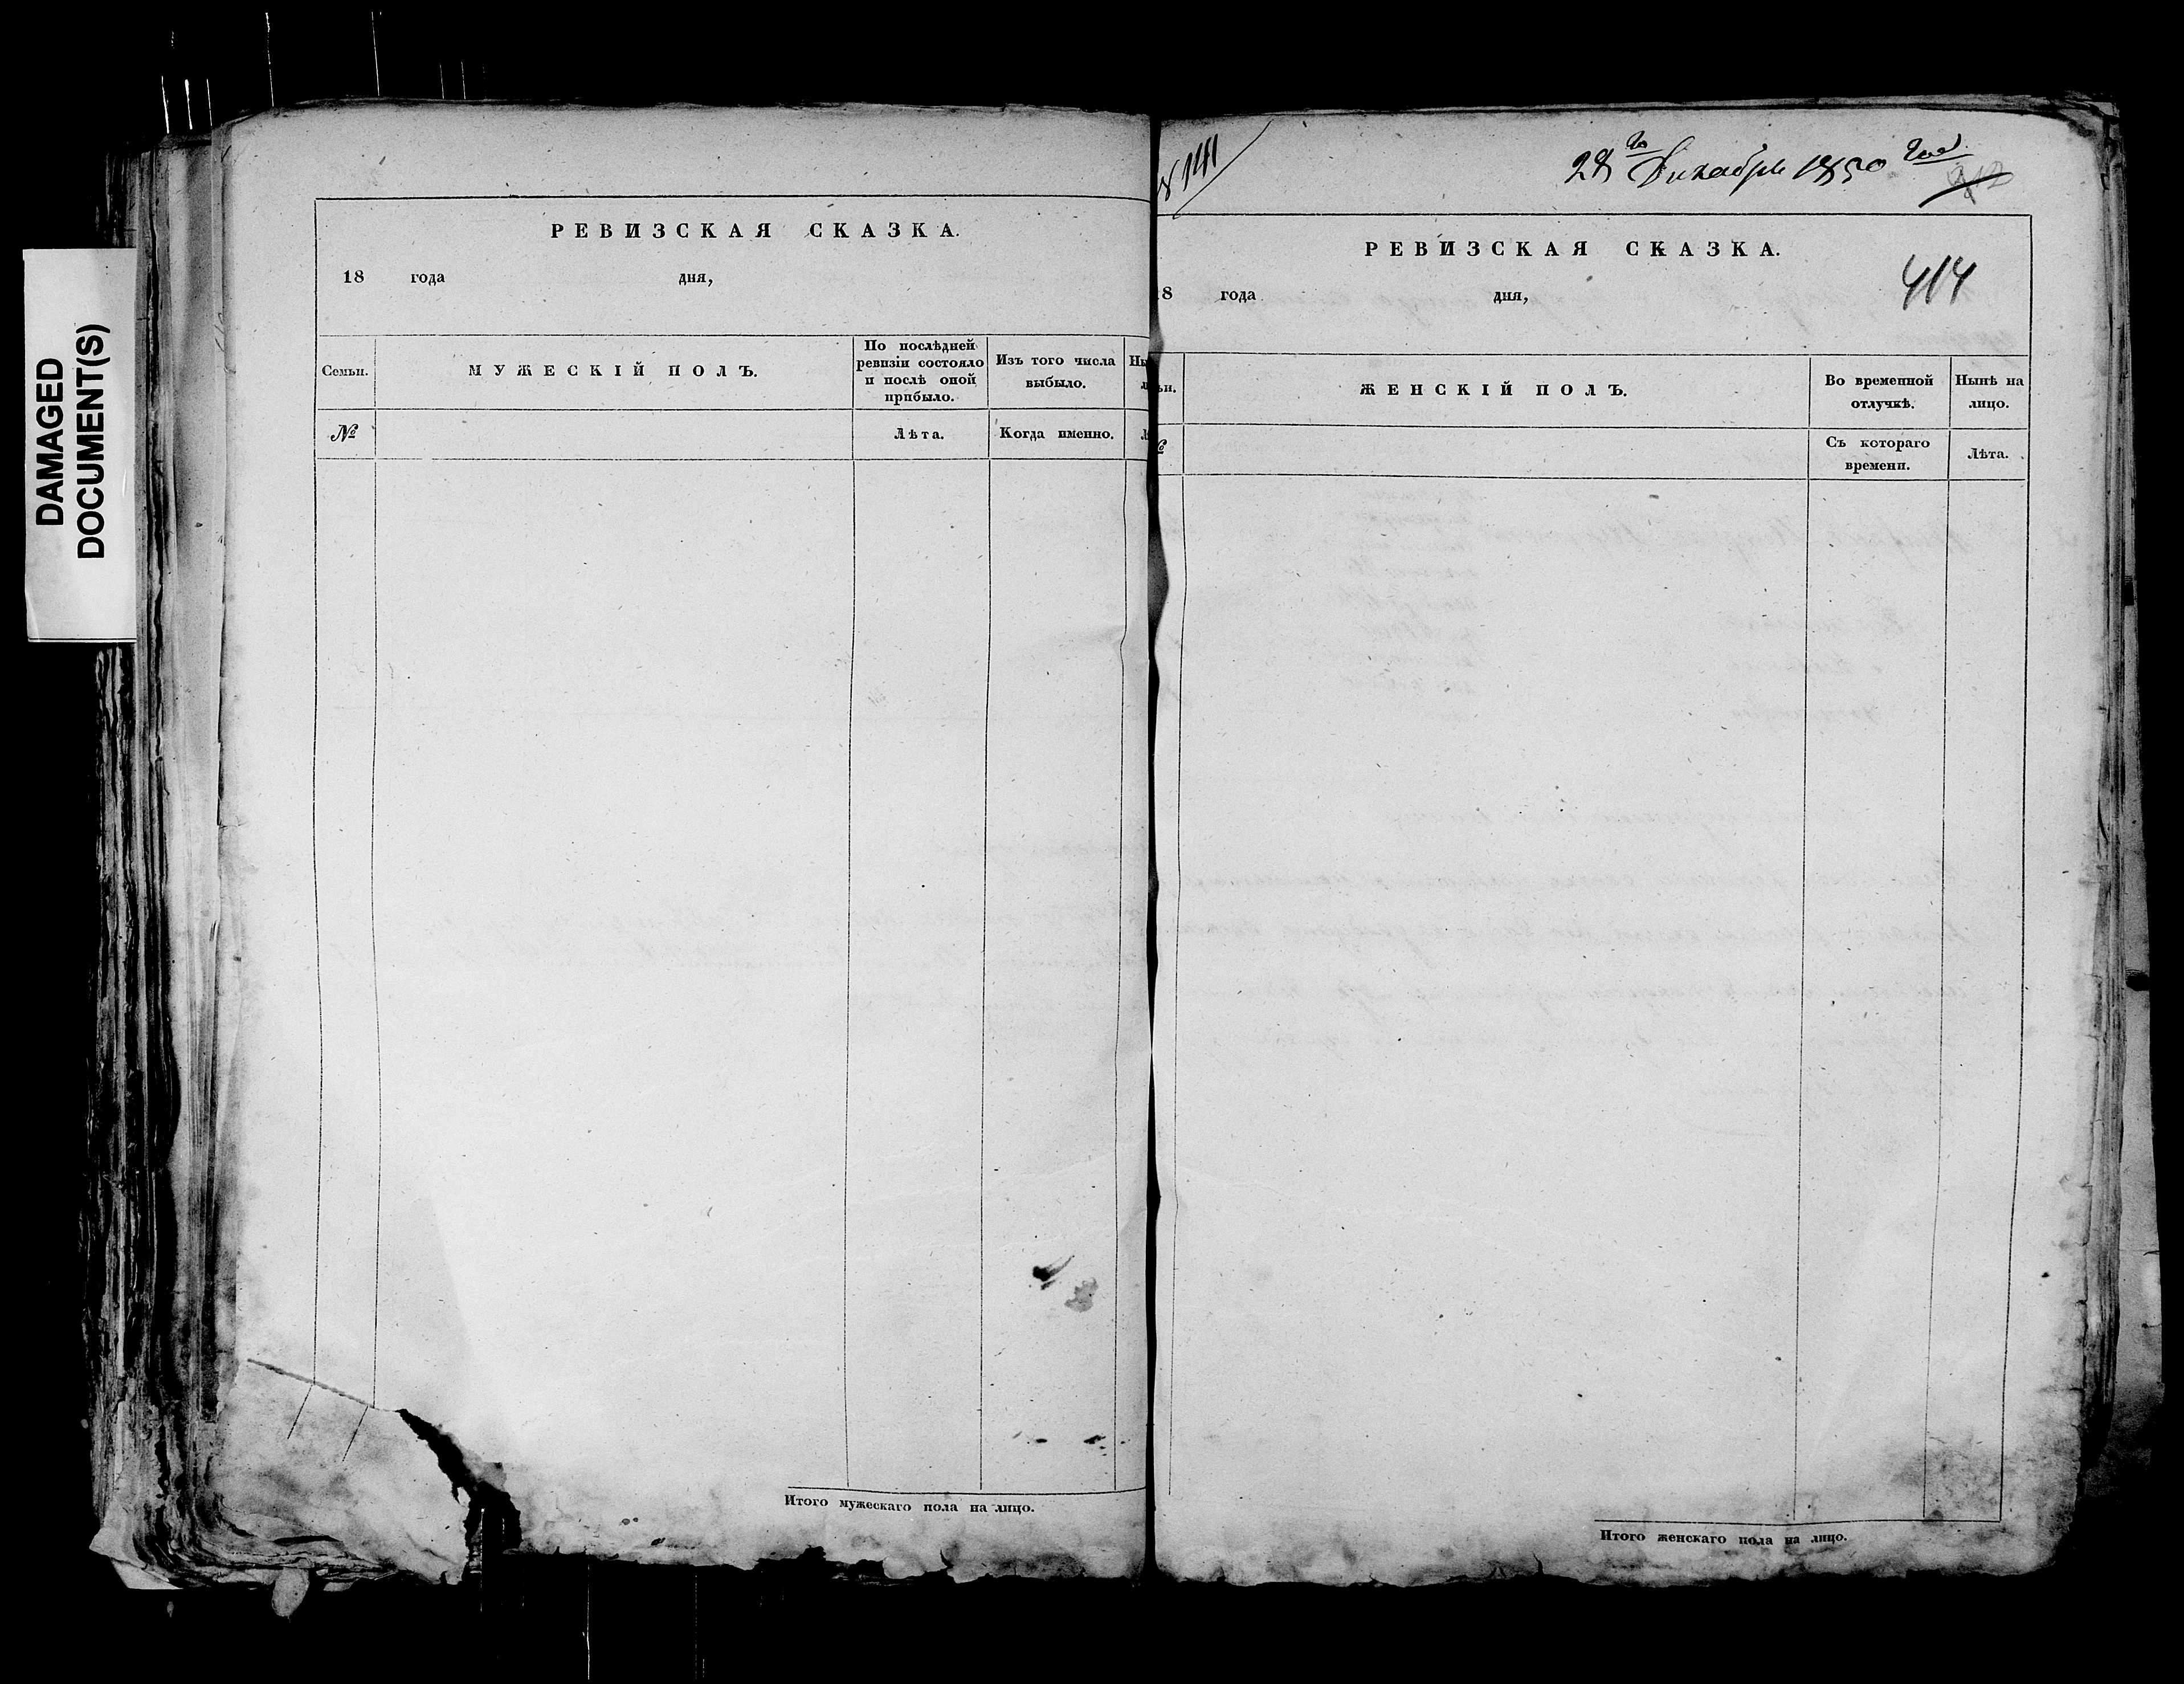 DAMAGED
DOCUMENT(S)
РЕВИЗСКАЯ СКАЗКА.
18 года дня,
Семьи.
МУЖЕСКІЙ ПОЛЪ.
По послѣдней
ревизіи состояло
и послѣ оной
прибыло.
Изъ того числа
выбыло.
№
Лѣта.
Когда именно.
Итого мужескаго пола на лицо.
№ 141
28 го Декабря 1850 года
414
РЕВИЗСКАЯ СКАЗКА.
8 года дня,
ьи.
ЖЕНСКІЙ ПОЛЪ.
Во временной
отлучкѣ.
Нынѣ на
лицо.
Съ котораго
времени.
Лѣта.
Итого женскаго пола на лицо.